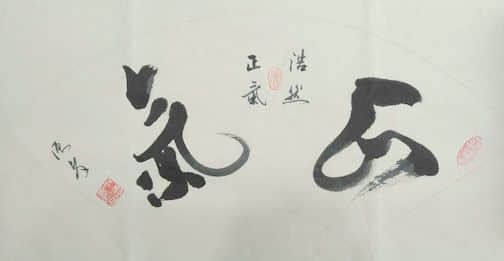 正氣
浩然
正氣